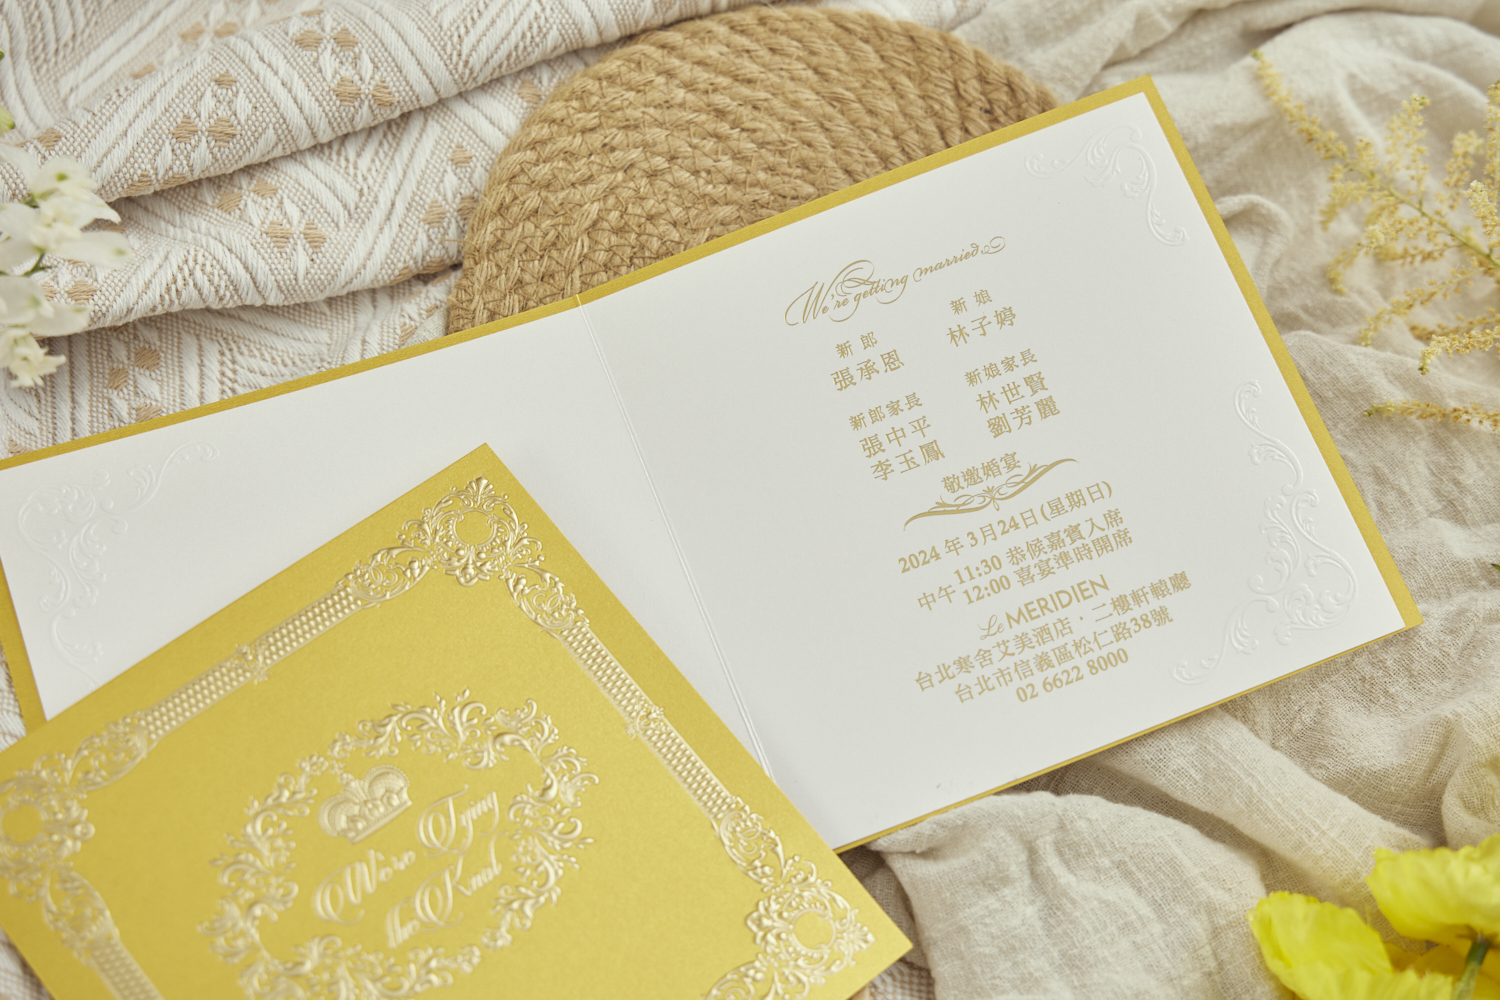 We're getting married
新郎
張承恩
新娘
林子婷
新郎家長
張中平
李玉鳳
新娘家長
林世賢
劉芳麗
敬邀婚宴
2024 年 3月24日(星期日)
中午 11:30 恭候嘉賓入席
12:00 喜宴準時開席
Le MERIDIEN
台北寒舍艾美酒店，二樓軒轅廳
台北市信義區松仁路38號
02 6622 8000
We're Tying
the Knot